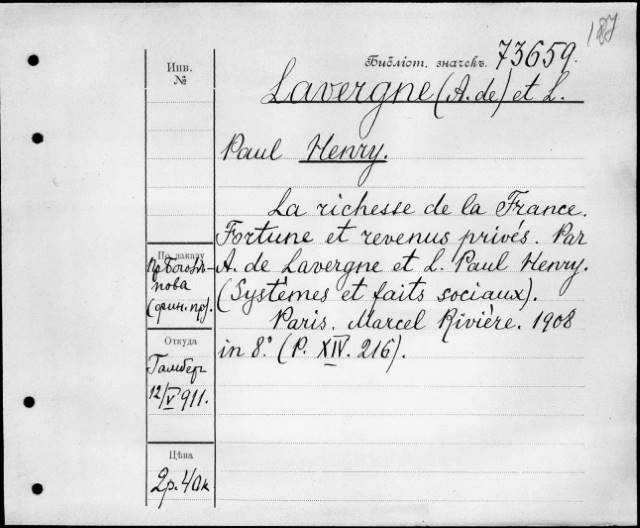 187
Библіот. значекъ. 73659.
Инв.
№
Lavergne (A. de) et L.
Paul Henry.
La richesse de la France.
Fortune et revenus privés. Par
A. de Lavergne et L. Paul Henry.
(Systèmes et faits sociaux).
Paris. Marcel Rivière. 1908
in 8.° (P. XIV. 216).
По заказу
пр. Боголѣ-
пова
(фин. пр).
Откуда
Гамбер
12/V 911.
Цѣна
2р. 40к